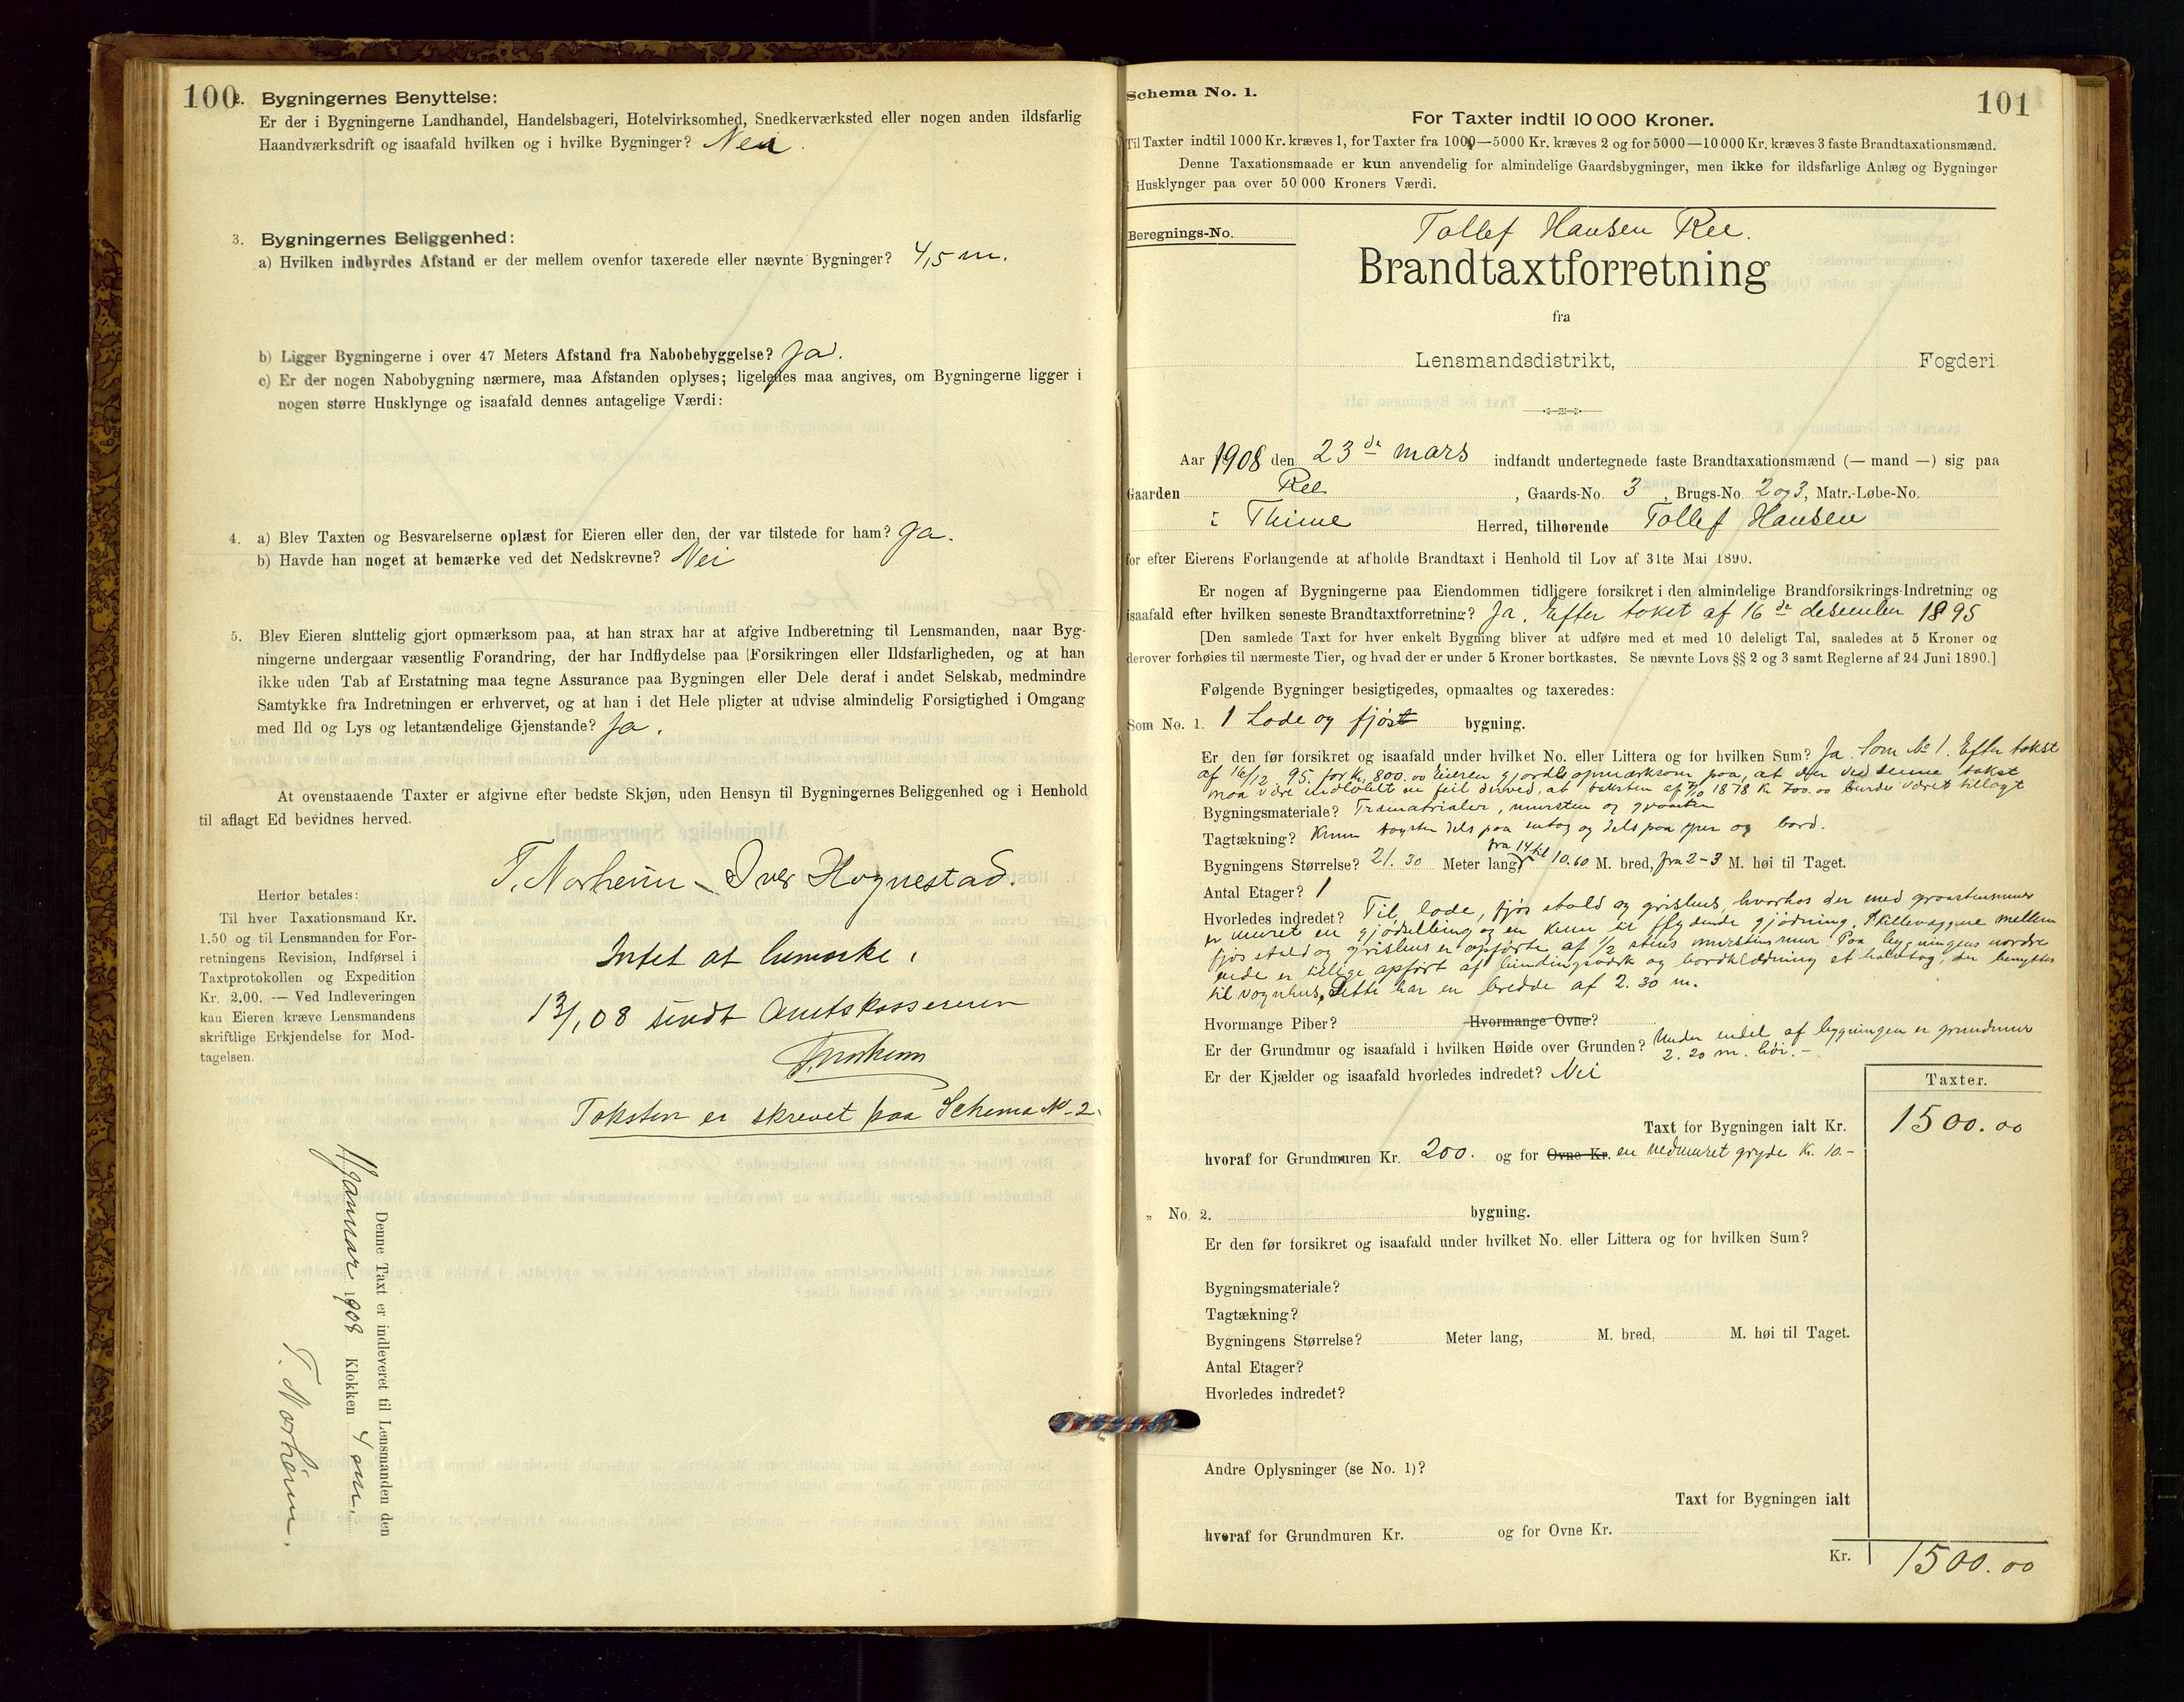 100
2. Bygningernes Benyttelse:
Er der i Bygningerne Landhandel, Handelsbageri, Hotelvirksomhed, Snedkerværksted eller nogen anden ildsfarlig
Haandværksdrift og isaafald hvilken og i hvilke Bygninger? Nei.
3. Bygningernes Beliggenhed:
a) Hvilken indbyrdes Afstand er der mellem ovenfor taxerede eller nævnte Bygninger? 4,5 m.
b) Ligger Bygningerne i over 47 Meters Afstand fra Nabobebyggelse? Ja.
c) Er der nogen Nabobygning nærmere, maa Afstanden oplyses; ligeledes maa angives, om Bygningerne ligger i
nogen større Husklynge og isaafald dennes antagelige Værdi:
4. a) Blev Taxten og Besvarelserne oplæst for Eieren eller den, der var tilstede for ham? Ja.
b) Havde han noget at bemærke ved det Nedskrevne? Nei
5. Blev Eieren sluttelig gjort opmærksom paa, at han strax har at afgive Indberetning til Lensmanden, naar Byg-
ningerne undergaar væsentlig Forandring, der har Indflydelse paa Forsikringen eller Ildsfarligheden, og at han
ikke uden Tab af Erstatning maa tegne Assurance paa Bygningen eller Dele deraf i andet Selskab, medmindre
Samtykke fra Indretningen er erhvervet, og at han i det Hele pligter at udvise almindelig Forsigtighed i Omgang
med Ild og Lys og letantændelige Gjenstande? Ja.
At ovenstaaende Taxter er afgivne efter bedste Skjøn, uden Hensyn til Bygningernes Beliggenhed og i Henhold
til aflagt Ed bevidnes herved.
T. Norheim Iver Hognestad.
Herfor betales:
Til hver Taxationsmand Kr.
1.50 og til Lensmanden for For-
retningens Revision, Indførsel i
Taxtprotokollen og Expedition
Kr. 2.00. — Ved Indleveringen
kan Eieren kræve Lensmandens
skriftlige Erkjendelse for Mod-
tagelsen.
Intet at bemærke.
13/1 08 sendt Amtskassereren
T. Norheim
Taksten er skrevet paa Schema No 2.
Denne Taxt er indleveret til Lensmanden den
11 Januar 1908 Klokken 4 em.
T. Norheim.
Schema No. 1.
101
For Taxter indtil 10 000 Kroner.
Til Taxter indtil 1000 Kr. kræves 1, for Taxter fra 1000—5000 Kr. kræves 2 og for 5000—10000 Kr. kræves 3 faste Brandtaxationsmænd.
Denne Taxationsmaade er kun anvendelig for almindelige Gaardsbygninger, men ikke for ildsfarlige Anlæg og Bygninger
i Husklynger paa over 50 000 Kroners Værdi.
Beregnings-No.
Tollef Hansen Ree.
Brandtaxtforretning
fra
Lensmandsdistrikt, Fogderi
Aar 1908 den 23de mars indfandt undertegnede faste Brandtaxationsmænd (— mand —) sig paa
Gaarden Ree, Gaards-No. 3, Brugs-No. 2 og 3, Matr.-Løbe-No.
i Thime Herred, tilhørende Tollef Hansen
for efter Eierens Forlangende at afholde Brandtaxt i Henhold til Lov af 31te Mai 1890.
Er nogen af Bygningerne paa Eiendommen tidligere forsikret i den almindelige Brandforsikrings-Indretning og
isaafald efter hvilken seneste Brandtaxtforretning? Ja. Efter takst af 16de desember 1895
[Den samlede Taxt for hver enkelt Bygning bliver at udføre med et med 10 deleligt Tal, saaledes at 5 Kroner og
derover forhøies til nærmeste Tier, og hvad der er under 5 Kroner bortkastes. Se nævnte Lovs §§ 2 og 3 samt Reglerne af 24 Juni 1890.]
Følgende Bygninger besigtigedes, opmaaltes og taxeredes:
Som No. 1. 1 Lade og fjøs bygning.
Er den før forsikret og isaafald under hvilket No. eller Littera og for hvilken Sum? Ja. Som No 1. Efter takst
af 16/12 95. for Kr. 800.00 Eieren gjordes opmærksom paa, at der ved denne takst
maa være indløbet en feil derved, at taksten af 1878 Kr. 700.00 burde været tillagt
Bygningsmateriale? Træmatrialer, mursten og graasten
Tagtækning? Krum tagsten dels paa og dels paa og bord.
Bygningens Størrelse? 21.30 Meter lang, fra 14 til 10.60 M. bred, fra 2-3 M. høi til Taget.
Antal Etager? 1
Hvorledes indredet? Til lade, fjøs stald og grishus, hvorhos der med graastensmur
er muret en gjødselbing og en kum til flydende gjødning. Skillevæggene mellem
fjøs stald og grishus er opførte af 1/2 stens murstensmur. Paa bygningens nordre
ende er tillige opført af bindingsværk og bordklædning et halvtag, der benyttes
til vognhus. Dette har en bredde af 2.30 m.
Hvormange Piber? Hvormange Ovne?
Er der Grundmur og isaafald i hvilken Høide over Grunden? Under endel af bygningen er grundmur
2.20 m. høi.-
Er der Kjælder og isaafald hvorledes indredet? Nei
Taxter.
Taxt for Bygningen ialt Kr. 1500.00
hvoraf for Grundmuren Kr. 200. og for Ovne Kr. en nedmuret gryde Kr. 10.-
" No. 2. bygning.
Er den før forsikret og isaafald under hvilket No. eller Littera og for hvilken Sum?
Bygningsmateriale?
Tagtækning?
Bygningens Størrelse? Meter lang, M. bred, M. høi til Taget.
Antal Etager?
Hvorledes indredet?
Andre Oplysninger (se No. 1)?
Taxt for Bygningen ialt
hvoraf for Grundmuren Kr. og for Ovne Kr.
Kr. 1500.00